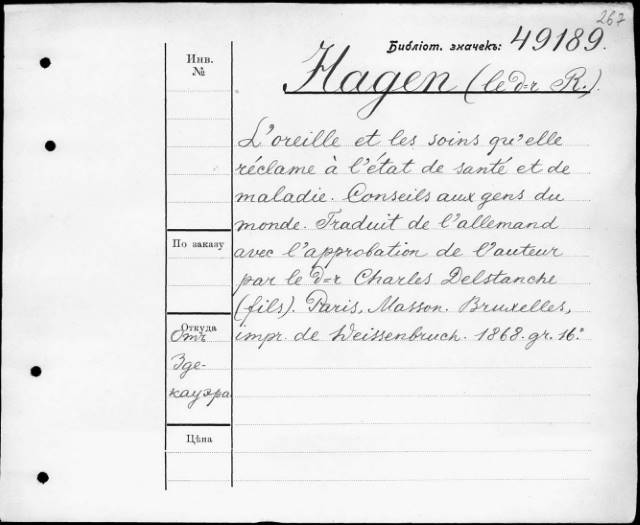 267
Библіот. значекъ: 49189.
Hagen (le d=r R.).
Инв.
№
L'oreille et les soins qu'elle
réclame à l'état de santé et de
maladie. Conseils aux gens du
monde. Traduit de l'allemand
По заказу
avec l'approbation de l'auteur
par le d=r Charles Delstanche
(fils). Paris, Masson. Bruxelles,
Откуда
Отъ
impr. de Weissenbruch. 1868. gr. 16°
Зде-
кауэра
Цѣна